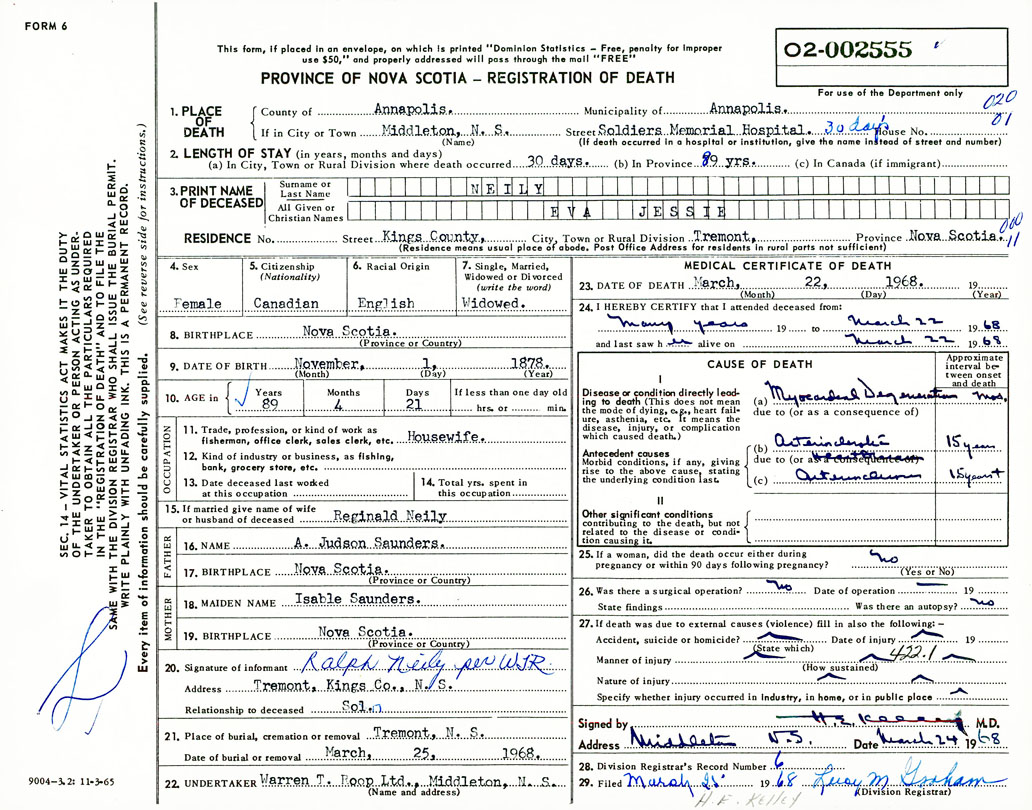 FORM 6
This form, if placed in an envelope, on which is printed "Dominion Statistics – Free, penalty for improper
use $50," and properly addressed will pass through the mail "FREE"
PROVINCE OF NOVA SCOTIA – REGISTRATION OF DEATH
02-002555
For use of the Department only
020
01
1. PLACE OF DEATH
County of Annapolis. Municipality of Annapolis.
If in City or Town Middleton, N. S. Street Soldiers Memorial Hospital. 30 days House No.
(Name) (If death occurred in a hospital or institution, give the name instead of street and number)
2. LENGTH OF STAY (in years, months and days)
(a) In City, Town or Rural Division where death occurred 30 days. (b) In Province 89 yrs. (c) In Canada (if immigrant)
3. PRINT NAME OF DECEASED
Surname or Last Name NEILY
All Given or Christian Names EVA JESSIE
000
11
RESIDENCE No. Street Kings County, City, Town or Rural Division Tremont, Province Nova Scotia.
(Residence means usual place of abode. Post Office Address for residents in rural parts not sufficient)
4. Sex
Female
5. Citizenship
(Nationality)
Canadian
6. Racial Origin
English
7. Single, Married,
Widowed or Divorced
(write the word)
Widowed.
8. BIRTHPLACE Nova Scotia.
(Province or Country)
9. DATE OF BIRTH November, 1, 1878.
(Month) (Day) (Year)
10. AGE in Years Months Days If less than one day old
89 4 21 hrs. or min.
OCCUPATION
11. Trade, profession, or kind of work as
fisherman, office clerk, sales clerk, etc. Housewife.
12. Kind of industry or business, as fishing,
bank, grocery store, etc.
13. Date deceased last worked
at this occupation
14. Total yrs. spent in
this occupation
15. If married give name of wife
or husband of deceased Reginald Neily
FATHER
16. NAME A. Judson Saunders.
17. BIRTHPLACE Nova Scotia.
(Province or Country)
MOTHER
18. MAIDEN NAME Isable Saunders.
19. BIRTHPLACE Nova Scotia.
(Province or Country)
20. Signature of informant Ralph Neily per WTR
Address Tremont, Kings Co., N. S.
Relationship to deceased Son
21. Place of burial, cremation or removal Tremont, N. S.
Date of burial or removal March, 25, 1968.
22. UNDERTAKER Warren T. Roop Ltd., Middleton, N. S.
(Name and address)
MEDICAL CERTIFICATE OF DEATH
23. DATE OF DEATH March, 22, 1968. 19
(Month) (Day) (Year)
24. I HEREBY CERTIFY that I attended deceased from:
many years 19 to March 22 1968
and last saw her alive on March 22 1968
CAUSE OF DEATH
Approximate
interval be-
tween onset
and death
I
Disease or condition directly lead-
ing to death (This does not mean
the mode of dying, e.g., heart fail-
ure, asthenia, etc. It means the
disease, injury, or complication
which caused death.)
(a) Myocardial Degeneration mos.
due to (or as a consequence of)
Antecedent causes
Morbid conditions, if any, giving
rise to the above cause, stating
the underlying condition last.
(b) Arteriosclerotic 15 years
due to (or as a consequence of)
(c) 15 years
II
Other significant conditions
contributing to the death, but not
related to the disease or condi-
tion causing it.
25. If a woman, did the death occur either during
pregnancy or within 90 days following pregnancy? no
(Yes or No)
26. Was there a surgical operation? no Date of operation — 19
State findings Was there an autopsy? no
27. If death was due to external causes (violence) fill in also the following: –
Accident, suicide or homicide? Date of injury 19
(State which)
Manner of injury 422.1
(How sustained)
Nature of injury
Specify whether injury occurred in industry, in home, or in public place
Signed by H. E. Kelley M.D.
Address Middleton N.S. Date March 24 1968
28. Division Registrar's Record Number 6
29. Filed March 25 1968 Leroy M. Graham
(Division Registrar)
H. E. KELLEY
SEC. 14 – VITAL STATISTICS ACT MAKES IT THE DUTY
OF THE UNDERTAKER OR PERSON ACTING AS UNDER-
TAKER TO OBTAIN ALL THE PARTICULARS REQUIRED
IN THE "REGISTRATION OF DEATH" AND TO FILE THE
SAME WITH THE DIVISION REGISTRAR WHO SHALL ISSUE THE BURIAL PERMIT.
WRITE PLAINLY WITH UNFADING INK. THIS IS A PERMANENT RECORD.
Every item of information should be carefully supplied. (See reverse side for instructions.)
9004-3.2: 11-3-65